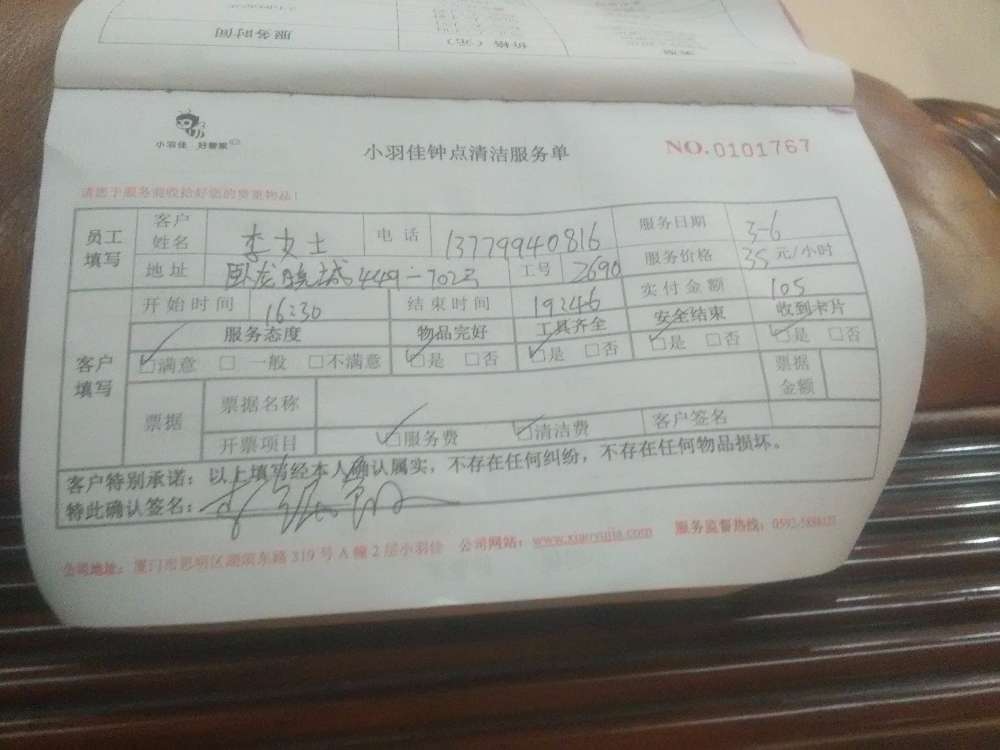 服务时间
小羽佳 好管家
小羽佳钟点清洁服务单
NO.0101767
请您于服务前收拾好您的贵重物品！
员工填写
客户姓名 李女士 电话 13779940816 服务日期 3-6
地址 卧龙晓城449-702号 工号 2690 服务价格 35 元/小时
客户填写
开始时间 16:30 结束时间 19:46 实付金额 105
服务态度 物品完好 工具齐全 安全结束 收到卡片
☑满意 □一般 □不满意 ☑是 □否 ☑是 □否 ☑是 □否 ☑是 □否
票据 票据名称 票据金额
开票项目 ☑服务费 ☑清洁费 客户签名
客户特别承诺：以上填写经本人确认属实，不存在任何纠纷，不存在任何物品损坏。
特此确认签名：
公司地址：厦门市思明区湖滨东路319号A幢2层小羽佳 公司网站：www.xiaoyujia.com 服务监督热线：